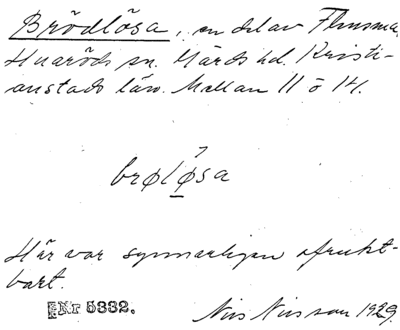 Brödlösa, en del av Flinsma,
Huaröds sn. Gärds hd. Kristi-
anstads län. Mellan 11 o 14.
brøløsa
Här var synnerligen ofrukt-
bart.
Nr 5332.
Nils Nilsson 1929.